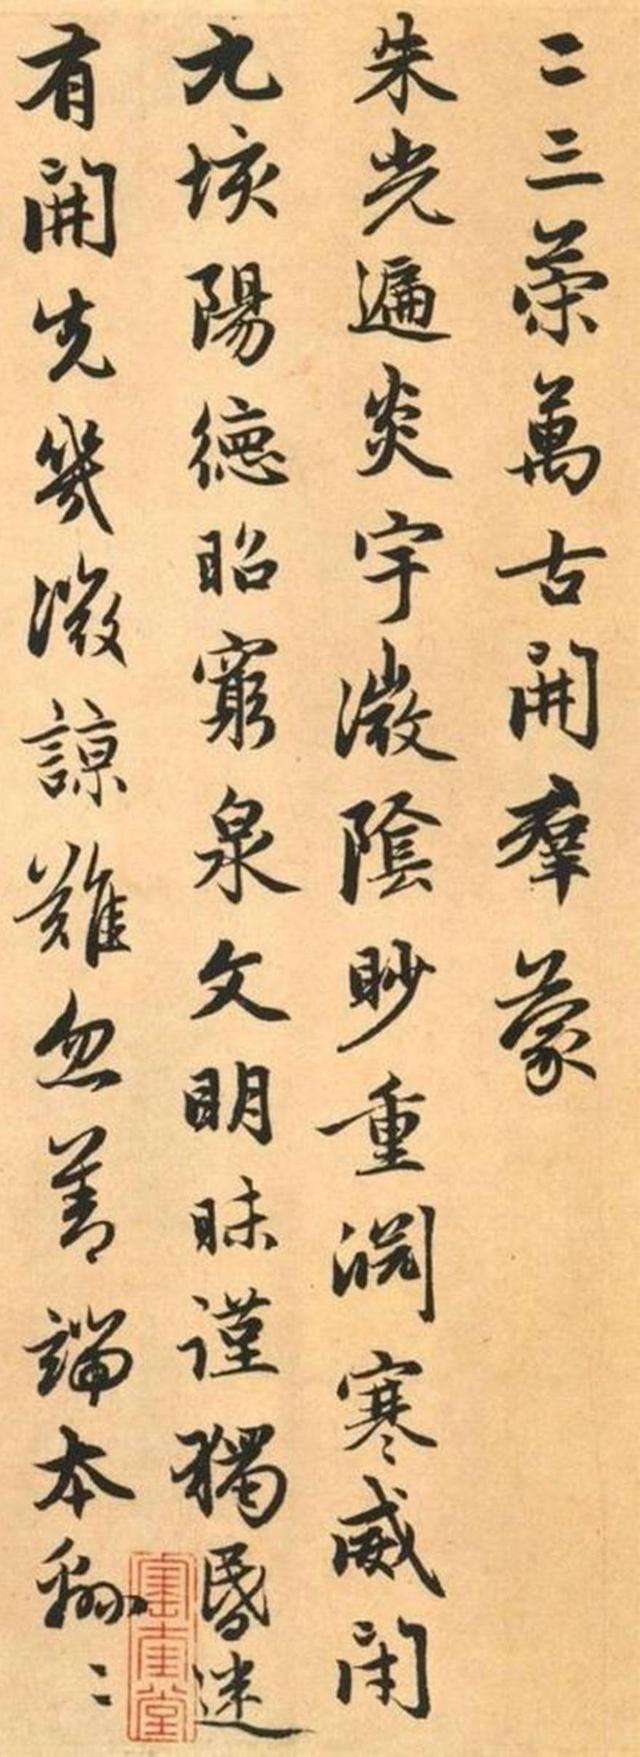 二三策萬古開羣蒙
朱光遍炎宇微陰眇重淵寒威閉
九垓陽德昭窮泉文明昧謹獨昏迷
有開先幾微諒難忽善端本緜〻